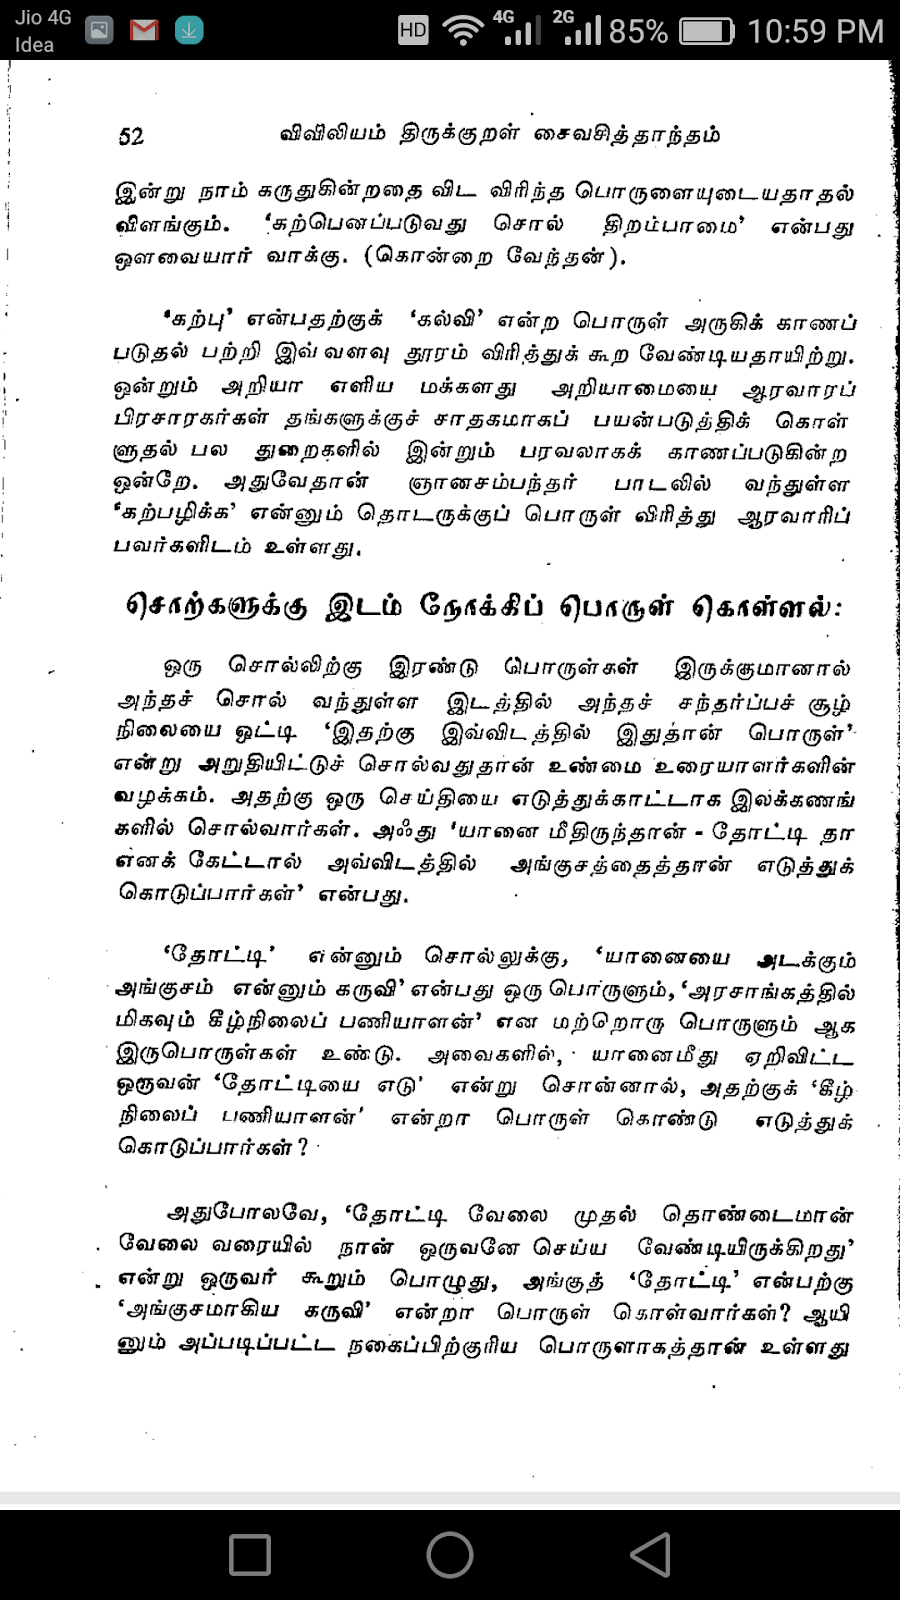 Jio 4G
Idea
HD 4G 2G 85% 10:59 PM
52 விவிலியம் திருக்குறள் சைவசித்தாந்தம்
இன்று நாம் கருதுகின்றதை விட விரிந்த பொருளையுடையதாதல்
விளங்கும். 'கற்பெனப்படுவது சொல் திறம்பாமை' என்பது
ஔவையார் வாக்கு. (கொன்றை வேந்தன்).
'கற்பு' என்பதற்குக் 'கல்வி' என்ற பொருள் அருகிக் காணப்
படுதல் பற்றி இவ்வளவு தூரம் விரித்துக் கூற வேண்டியதாயிற்று.
ஒன்றும் அறியா எளிய மக்களது அறியாமையை ஆரவாரப்
பிரசாரகர்கள் தங்களுக்குச் சாதகமாகப் பயன்படுத்திக் கொள்
ளுதல் பல துறைகளில் இன்றும் பரவலாகக் காணப்படுகின்ற
ஒன்றே. அதுவேதான் ஞானசம்பந்தர் பாடலில் வந்துள்ள
'கற்பழிக்க' என்னும் தொடருக்குப் பொருள் விரித்து ஆரவாரிப்
பவர்களிடம் உள்ளது.
சொற்களுக்கு இடம் நோக்கிப் பொருள் கொள்ளல்:
ஒரு சொல்லிற்கு இரண்டு பொருள்கள் இருக்குமானால்
அந்தச் சொல் வந்துள்ள இடத்தில் அந்தச் சந்தர்ப்பச் சூழ்
நிலையை ஒட்டி 'இதற்கு இவ்விடத்தில் இதுதான் பொருள்'
என்று அறுதியிட்டுச் சொல்வதுதான் உண்மை உரையாளர்களின்
வழக்கம். அதற்கு ஒரு செய்தியை எடுத்துக்காட்டாக இலக்கணங்
களில் சொல்வார்கள். அஃது 'யானை மீதிருந்தான் - தோட்டி தா
எனக் கேட்டால் அவ்விடத்தில் அங்குசத்தைத்தான் எடுத்துக்
கொடுப்பார்கள்' என்பது.
'தோட்டி' என்னும் சொல்லுக்கு, 'யானையை அடக்கும்
அங்குசம் என்னும் கருவி' என்பது ஒரு பொருளும், 'அரசாங்கத்தில்
மிகவும் கீழ்நிலைப் பணியாளன்' என மற்றொரு பொருளும் ஆக
இருபொருள்கள் உண்டு. அவைகளில், யானைமீது ஏறிவிட்ட
ஒருவன் 'தோட்டியை எடு' என்று சொன்னால், அதற்குக் 'கீழ்
நிலைப் பணியாளன்' என்றா பொருள் கொண்டு எடுத்துக்
கொடுப்பார்கள்?
அதுபோலவே, 'தோட்டி வேலை முதல் தொண்டைமான்
வேலை வரையில் நான் ஒருவனே செய்ய வேண்டியிருக்கிறது'
என்று ஒருவர் கூறும் பொழுது, அங்குத் 'தோட்டி' என்பற்கு
'அங்குசமாகிய கருவி' என்றா பொருள் கொள்வார்கள்? ஆயி
னும் அப்படிப்பட்ட நகைப்பிற்குரிய பொருளாகத்தான் உள்ளது